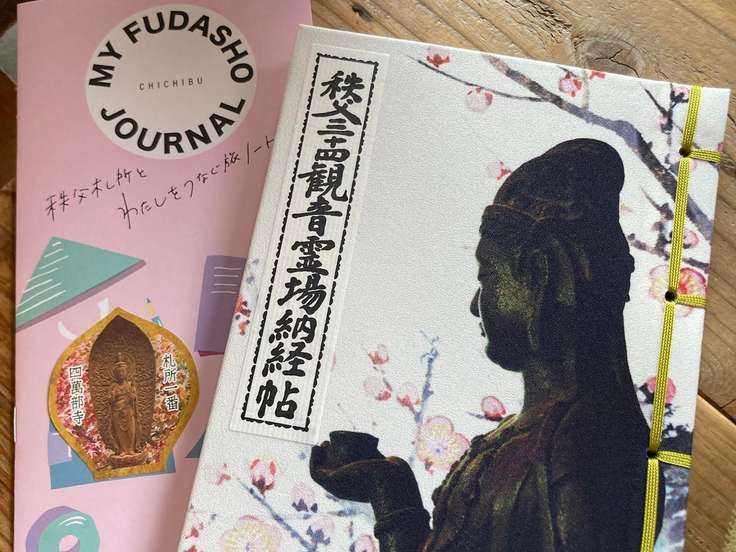 MY FUDASHO
CHICHIBU
JOURNAL
秩父札所と
わたしをつなぐ旅ノート
札所一番
四萬部寺
秩父三十四観音霊場納経帖